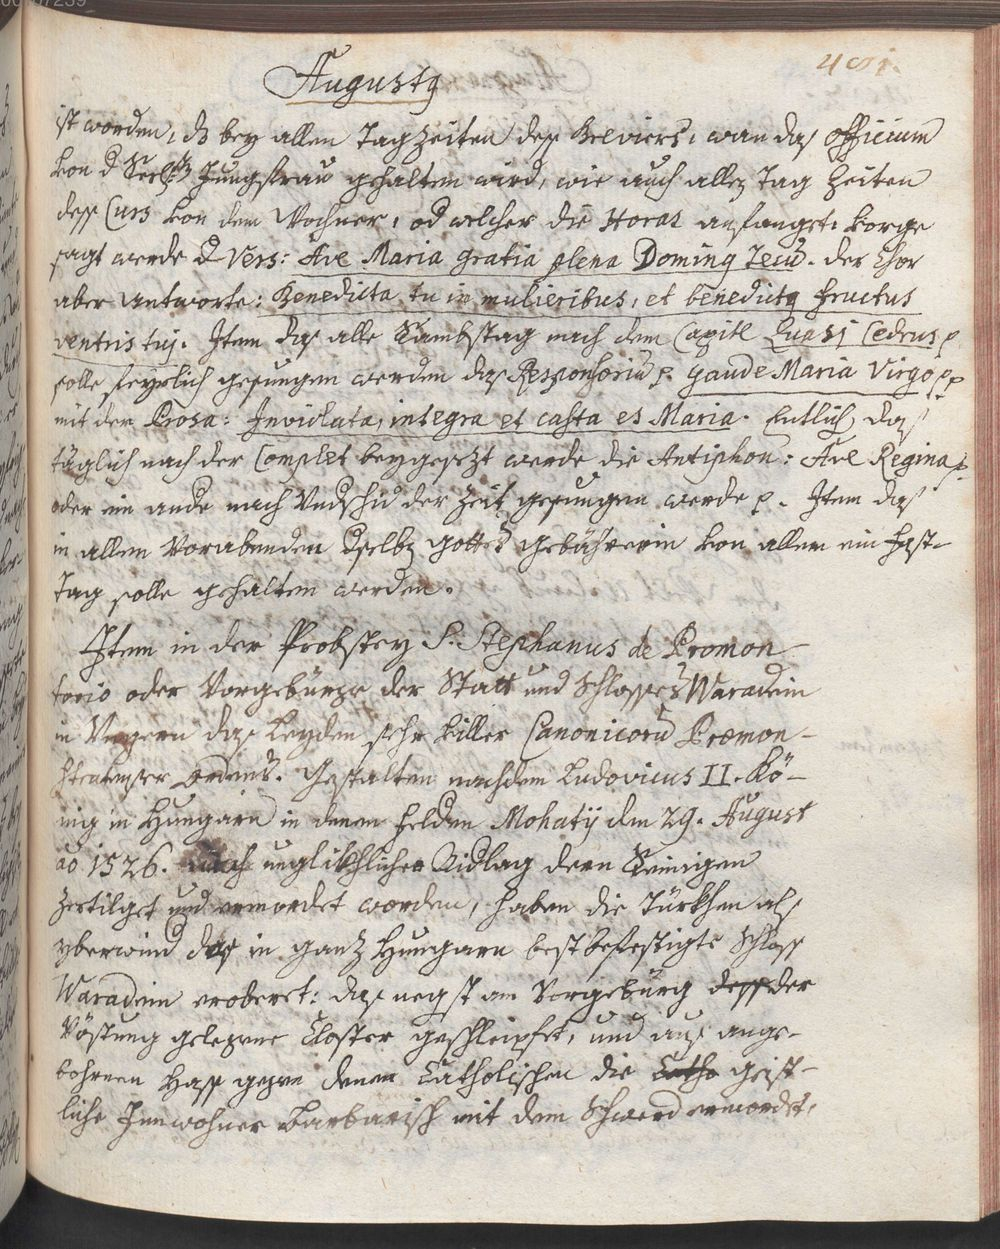 401.
Augusty
ist worden, dz bey allen Tagzeiten deß Breviers, wan daß officium
von d Seelgst Jungfrau gehalten wird, wie auch allen Tag Zeiten
deß Curs von dem Wochner, od welcher die Horas anfanget, vorge
sagt werde d Vers: Ave Maria gratia plena Dominq tecu. der Chor
aber antworte: Benedicta tu in mulieribus, et benedictq fructus
ventris tui. Item daß alle Sambstag nach dem Capitl Quasi Cedrus p
solle feyrlich gesungen werden daß Responsoriu p. Gaude Maria Virgo p p
mit der Prosa: Inviolata, integra et casta es Maria. Entlich daß
täglich nach der Complet beygesezt werde die Antiphon: Ave Regina p
oder ein ande nach Undschid der Zeit gesungen werde p. Item daß
in allen Vorabenden dselbn Gottes gebährerin von allen ein fast-
Tag solle gehalten werden.
Item in der Probstey S. Stephanus de Promon-
torio oder Vorgebürge der Statt und Schlosses Waradein
in Ungern daß Leyden sehr viller Canonicoru Præmon-
stratenser ordens. Gestalten nachdem Ludovicus II. Kö-
nig in Hungarn in denen Felden Mohatÿ den 29. August
ao 1526. nach unglikhlicher Nidlag dern Seinigen
Zertilget und ermordet worden, haben die Türkhen alß
yberwind daß in gantz Hungarn best befestigte Schloß
Waradein eroberet: daß negst am Vorgebürg deß der
Vöstung gelegene Closter geschleipfet, und auß ange-
bohrnen Haß gegen denen Catholischen die Catho geist-
liche Inwohner Barbarisch mit dem Schwerd ermordet,